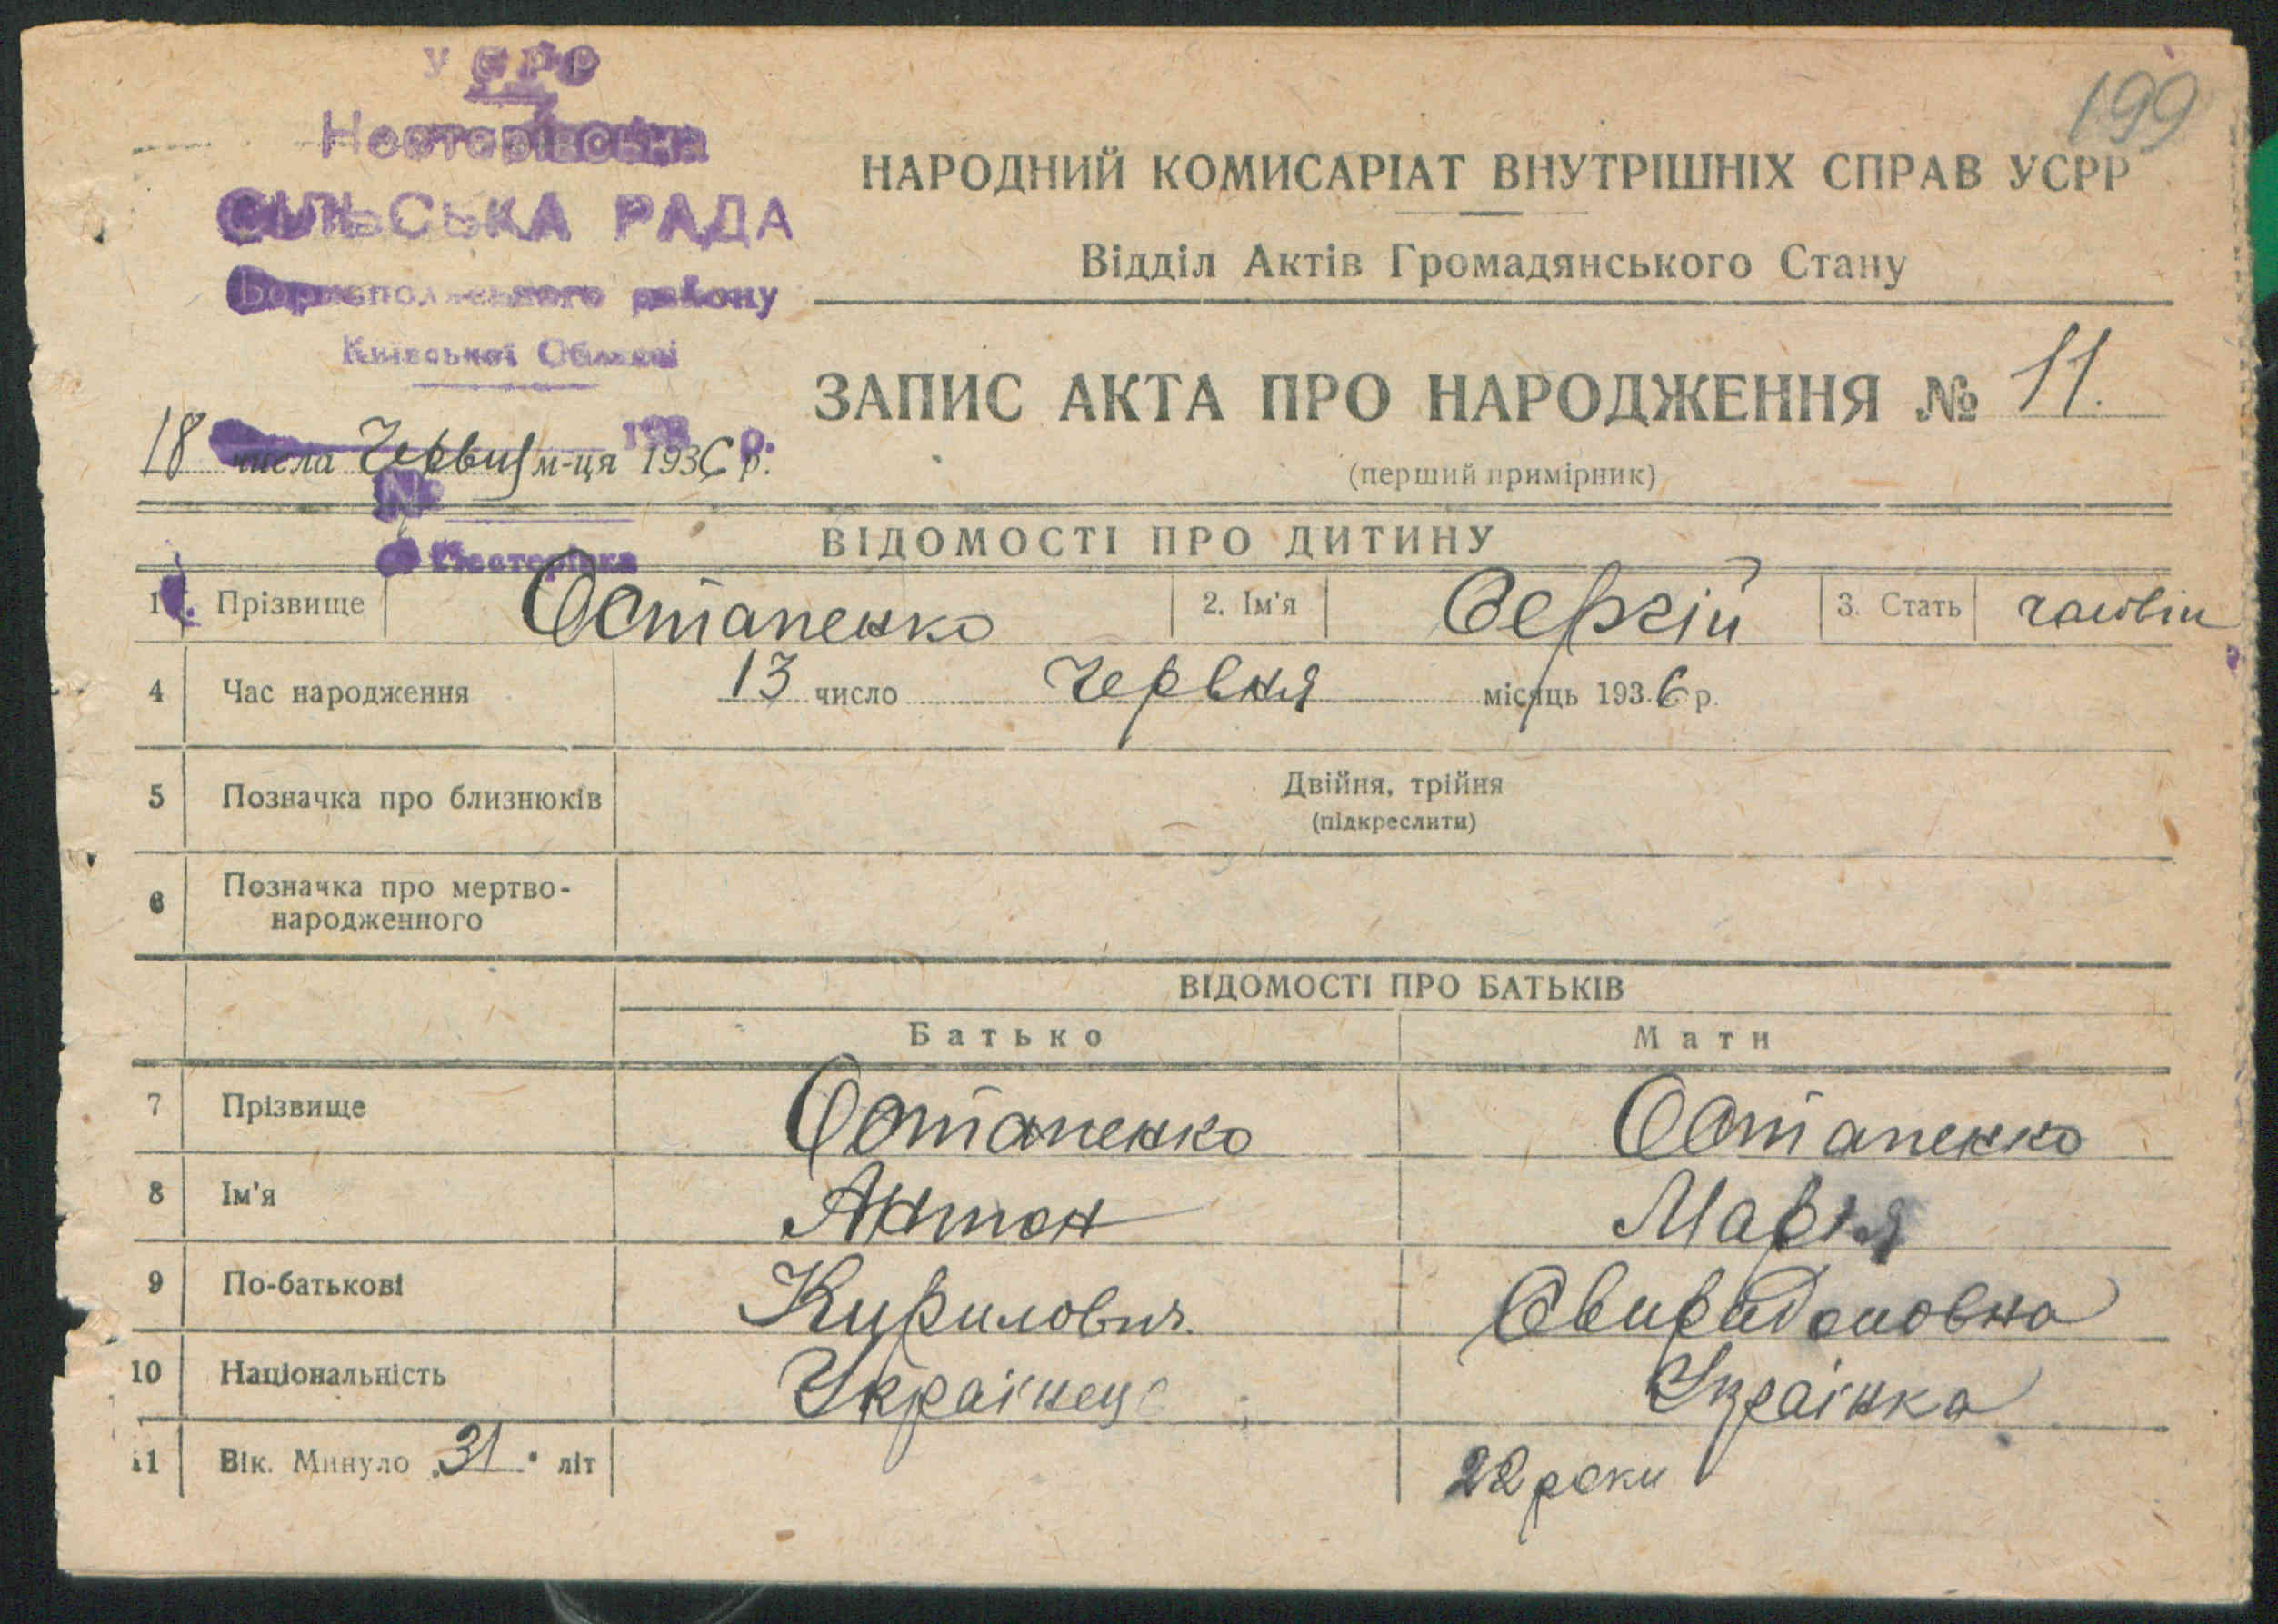 УСРР
Нестерівська
СІЛЬСЬКА РАДА
Бориспольського району
Київської Області
193 р.
№
Нестерівка
199
НАРОДНИЙ КОМИСАРІАТ ВНУТРІШНІХ СПРАВ УСРР
Відділ Актів Громадянського Стану
ЗАПИС АКТА ПРО НАРОДЖЕННЯ № 11.
(перший примірник)
18 числа Червня м-ця 1936 р.
ВІДОМОСТІ ПРО ДИТИНУ
1 Прізвище Остапенко 2. Ім'я Сергій 3. Стать чоловіч
4 Час народження 13 число Червня місяць 1936 р.
5 Позначка про близнюків Двійня, трійня
(підкреслити)
6 Позначка про мертво-
народженного
ВІДОМОСТІ ПРО БАТЬКІВ
Батько Мати
7 Прізвище Остапенко Остапенко
8 Ім'я Антон Марія
9 По-батькові Кирилович Свиридоновна
10 Національність Українець Українка
11 Вік. Минуло 31 літ 22 роки